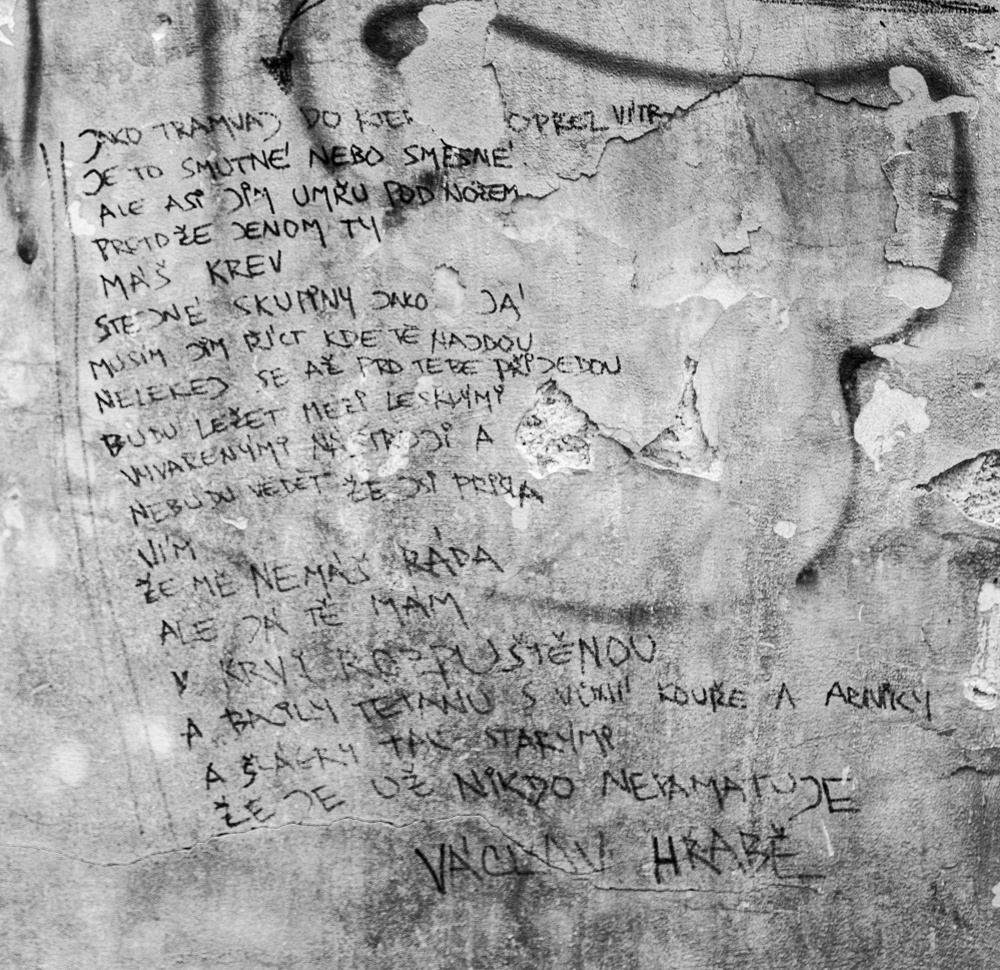 JAKO TRAMVAJ DO KTER OPŘEL VÍTR
JE TO SMUTNÉ NEBO SMĚSNÉ
ALE ASI JIM UMŘU POD NOŽEM
PROTOŽE JENOM TY
MÁŠ KREV
STEJNÉ SKUPINY JAKO JÁ
MUSÍM JIM ŘÍCT KDE TĚ NAJDOU
NELEKEJ SE AŽ PRO TEBE PŘIJEDOU
BUDU LEŽET MEZI LESKLÝMI
VYVAŘENÝMI NÁSTROJI A
NEBUDU VĚDĚT ŽE JSI PŘIŠLA
VÍM
ŽE MĚ NEMÁŠ RÁDA
ALE JÁ TĚ MÁM
V KRVI ROZPUŠTĚNOU
A BACILY TETANU S VŮNÍ KOUŘE A ARNIKY
A ŠLÁGRY TAK STARÝMI
ŽE JE UŽ NIKDO NEPAMATUJE
VÁCLAV HRABĚ